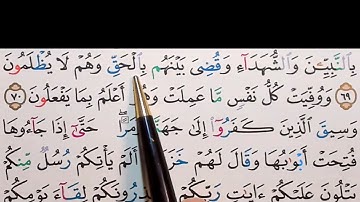 بِالنَّبِيِّـۧنَ وَالشُّهَدَآءِ وَقُضِىَ بَيْنَهُم بِالْحَقِّ وَهُمْ لَا يُظْلَمُونَ
٦٩ وَوُفِّيَتْ كُلُّ نَفْسٍ مَّا عَمِلَتْ أَعْلَمُ بِمَا يَفْعَلُونَ ٧٠
وَسِيقَ الَّذِينَ كَفَرُوٓا۟ إِلَىٰ حَتَّىٰٓ إِذَا جَآءُوهَا
فُتِحَتْ أَبْوَٰبُهَا وَقَالَ لَهُمْ أَلَمْ يَأْتِكُمْ رُسُلٌ مِّنكُمْ
يَتْلُونَ عَلَيْكُمْ ءَايَٰتِ رَبِّكُمْ لِقَآءَ يَوْمِكُمْ